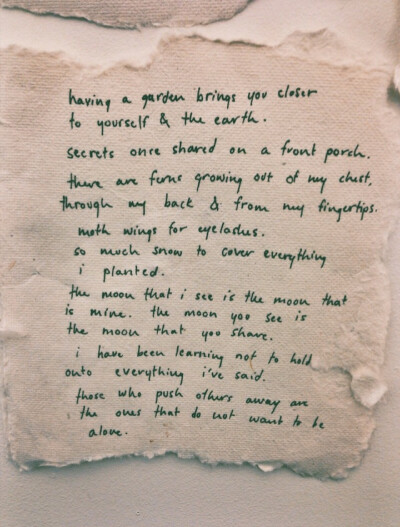 having a garden brings you closer
to yourself & the earth.
secrets once shared on a front porch.
there are ferns growing out of my chest,
through my back & from my fingertips.
moth wings for eyelashes.
so much snow to cover everything
i planted.
the moon that i see is the moon that
is mine. the moon you see is
the moon that you share.
i have been learning not to hold
onto everything i've said.
those who push others away are
the ones that do not want to be
alone.